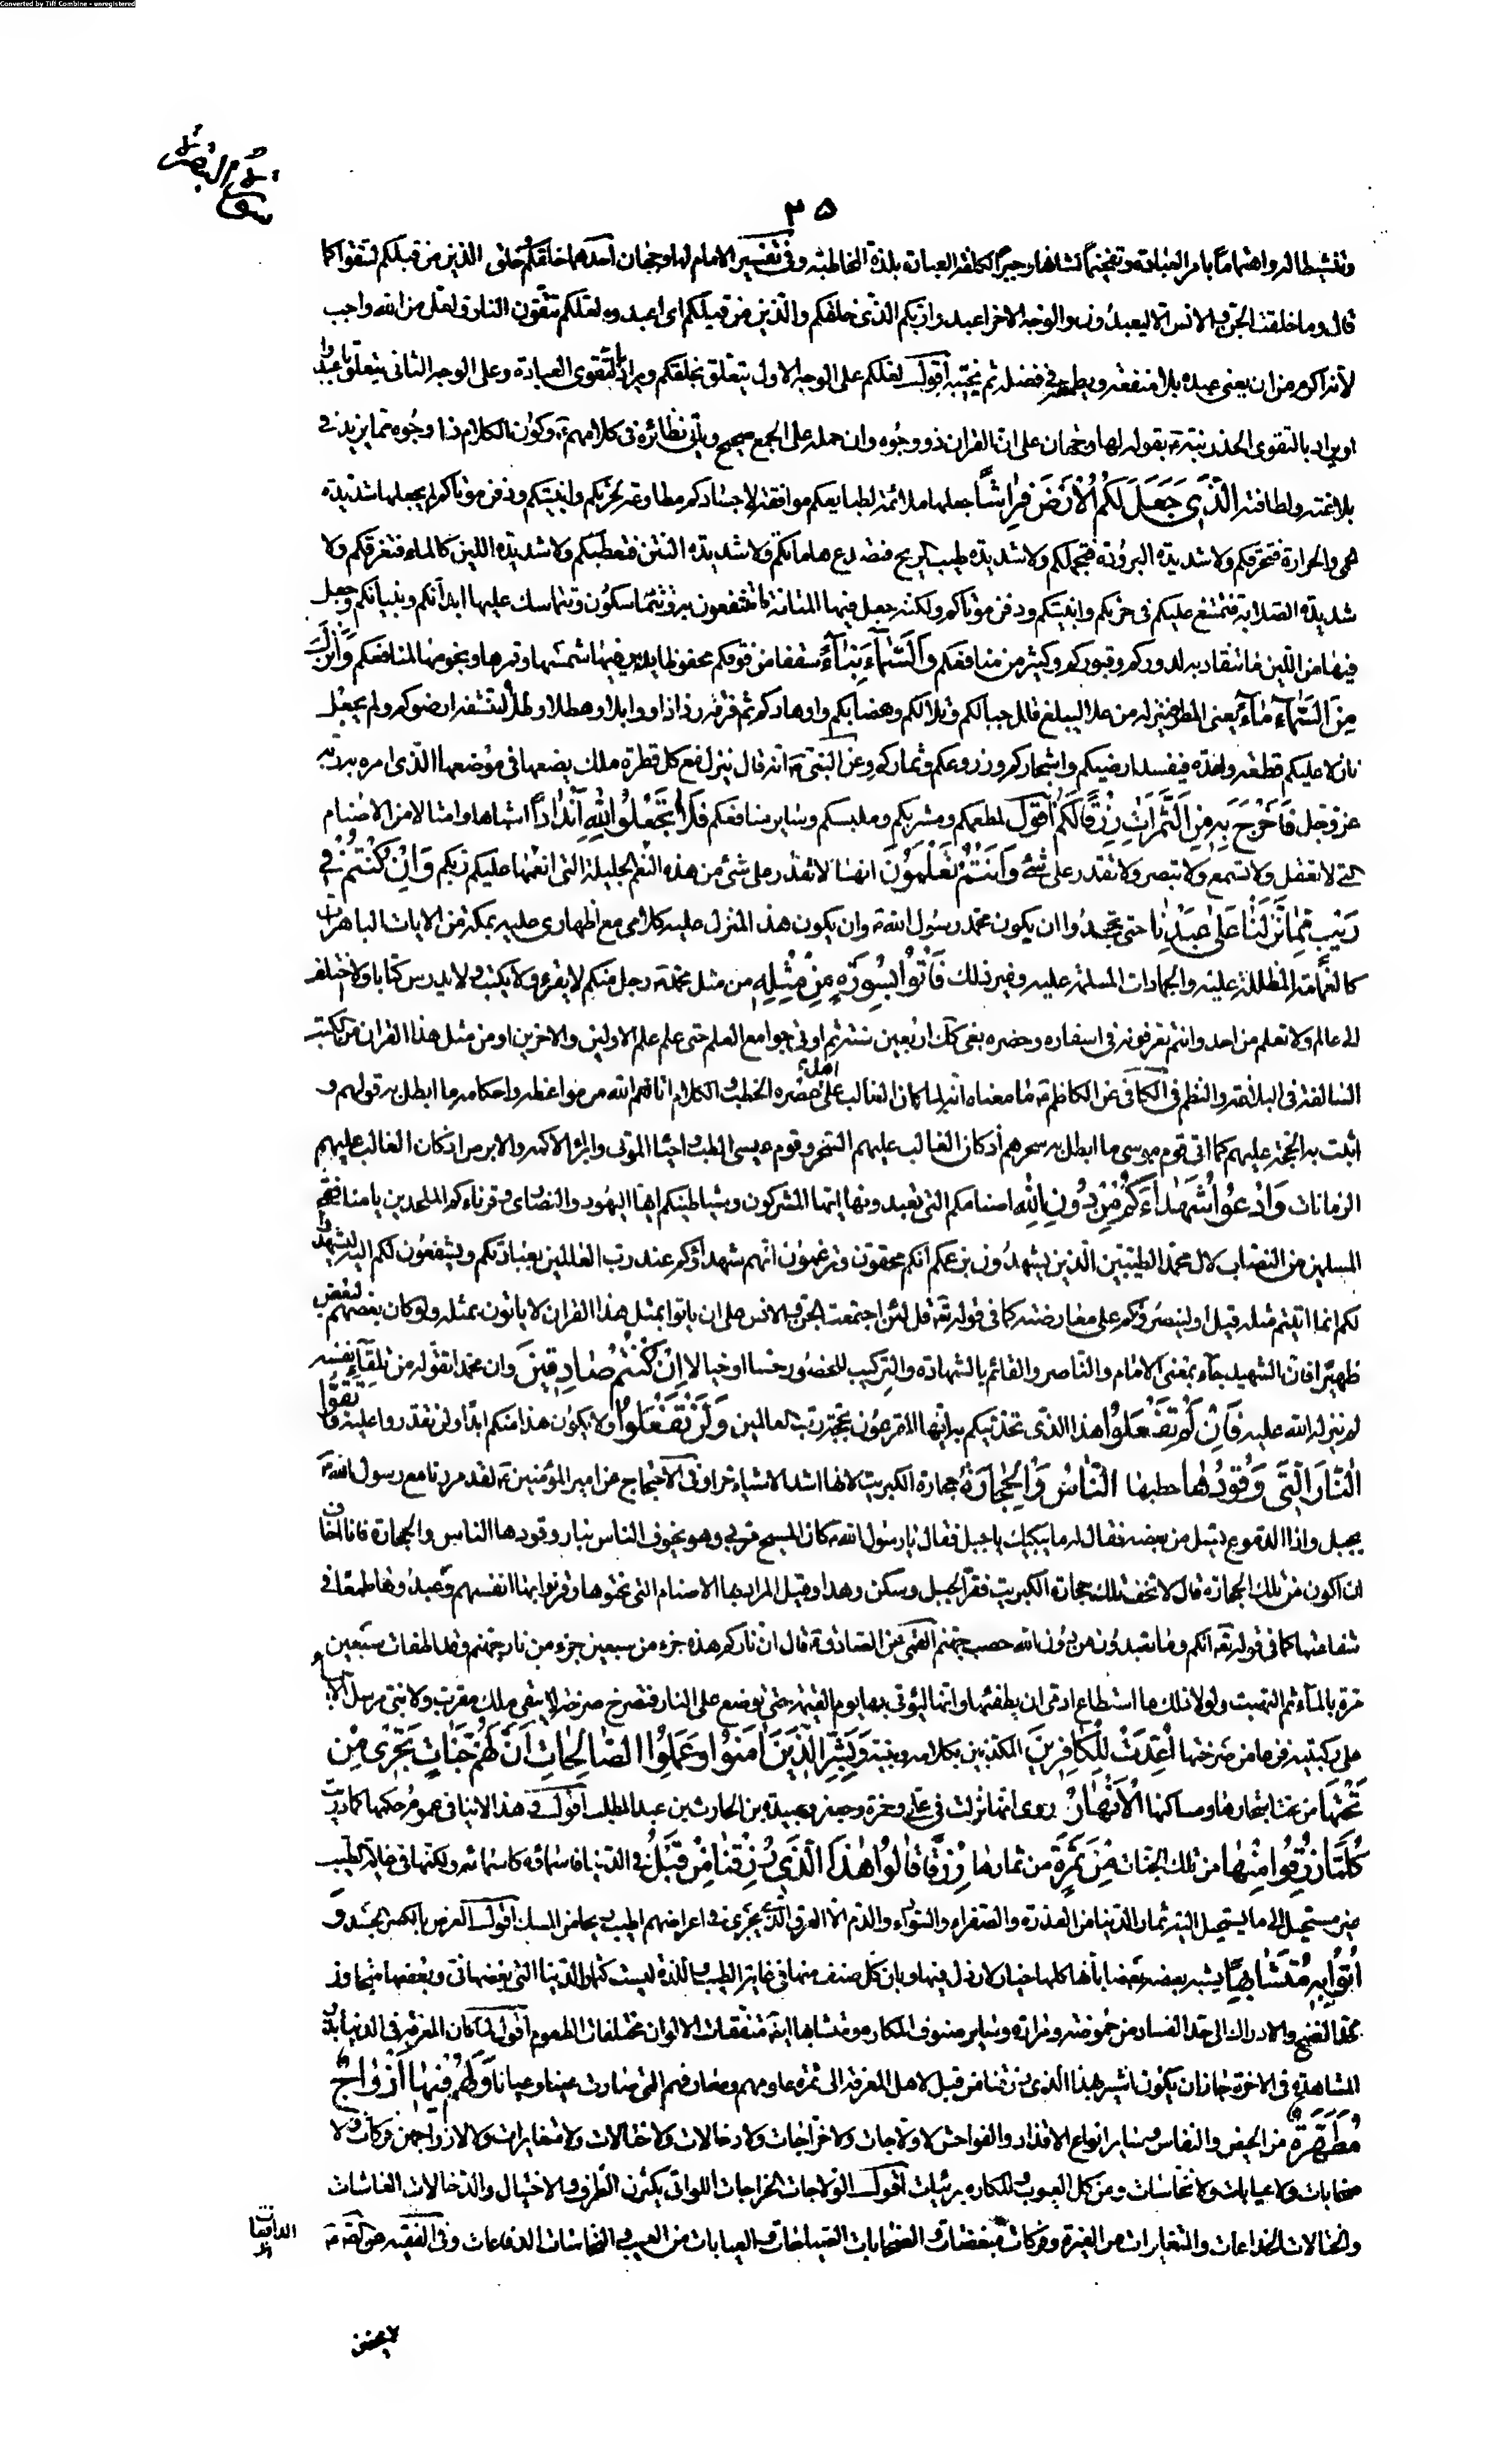 Converted by Tiff Combine - unregistered
سورة البقرة
٢٥
وتنشيطا له واهتماما بامر العبادة وتفخيما لشانها وجبرا لكلفة العبادة بلذة المخاطبة وفي تفسير الامام لها وجهان احدهما خلقكم وخلق الذين من قبلكم لتتقوا كما
قال وما خلقت الجن والانس الا ليعبدون والوجه الاخر اعبدوا ربكم الذي خلقكم والذين من قبلكم اى اعبدوه لعلكم تتقون النار ولعل من الله واجب
لأنه اكرم من ان يعنى عبده بلا منفعة ويطمعه في فضله ثم يخيبه اقول لعلكم على الوجه الاول يتعلق بخلقكم ويراد بالتقوى العبادة وعلى الوجه الثاني يتعلق باعبدوا
او يراد بالتقوى الحذر نبه بقوله لها وجهان على ان القران ذو وجوه وان حمله على الجميع صحيح ويأتي نظائره في كلامهم وكون الكلام ذا وجوه مما يزيد في
بلاغته ولطافته الَّذِي جَعَلَ لَكُمُ الْأَرْضَ فِرَاشًا جعلها ملائمة لطبايعكم موافقة لاجسادكم مطاوعة لحرثكم وابنيتكم ودفن موتاكم لم يجعلها شديدة
الحمى والحرارة فتحرقكم ولا شديدة البرودة فتجمدكم ولا شديدة طيب الريح فتصدع هاماتكم ولا شديدة النتن فتعطبكم ولا شديدة اللين كالماء فتغرقكم ولا
شديدة الصلابة فتمتنع عليكم في حرثكم وابنيتكم ودفن موتاكم ولكنه جعل فيها المتانة ما تنتفعون به وتتماسكون وتتماسك عليها ابدانكم وبنيانكم وجعل
فيها من اللين ما تنقاد به لدوركم وقبوركم وكثير من منافعكم وَالسَّمَاءَ بِنَاءً سقفا من فوقكم محفوظا يدير فيها شمسها وقمرها ونجومها لمنافعكم وَأَنْزَلَ
مِنَ السَّمَاءِ مَاءً يعنى المطر ينزله من علا ليبلغ قلل جبالكم وتلالكم وهضابكم واوهادكم ثم فرقه رذاذا ووابلا وهطلا وطلا لتنشفه ارضوكم ولم يجعل
نازلا عليكم قطعة واحدة فيفسد ارضيكم واشجاركم وزروعكم وثماركم وعن النبي ص انه قال ينزل مع كل قطرة ملك يضعها في موضعها الذي امره به ربه
عز وجل فَأَخْرَجَ بِهِ مِنَ الثَّمَرَاتِ رِزْقًا لَكُمْ اقول لمطعمكم ومشربكم وملبسكم وسائر منافعكم فَلَا تَجْعَلُوا لِلَّهِ أَنْدَادًا اشباها وامثالا من الاصنام
التي لا تعقل ولا تسمع ولا تبصر ولا تقدر على شئ وَأَنْتُمْ تَعْلَمُونَ انها لا تقدر على شئ من هذه النعم الجليلة التي انعمها عليكم ربكم وَإِنْ كُنْتُمْ فِي
رَيْبٍ مِمَّا نَزَّلْنَا عَلَى عَبْدِنَا حتى تجحدوا ان يكون محمد رسول الله ص وان يكون هذا المنزل عليه كلامي مع اظهاري عليه بمكة من الايات الباهرات
كالغمامة المظللة عليه والجمادات المسلمة عليه وغير ذلك فَأْتُوا بِسُورَةٍ مِنْ مِثْلِهِ من مثل محمد ص رجل منكم لا يقرء ولا يكتب ولا يدرس كتابا ولا اختلف
الى عالم ولا تعلم من احد وانتم تعرفونه في اسفاره وحضره بقى كك اربعين سنة ثم اوتي جوامع العلم حتى علم علم الاولين والاخرين او من مثل هذا القران من الكتب
السالفة في البلاغة والنظم في الكافي عن الكاظم ع ما معناه انه لما كان الغالب على اهل عصره الخطب والكلام اتاهم الله من مواعظه واحكامه ما ابطل به قولهم و
اثبت به الحجة عليهم كما اتى قوم موسى ما ابطل به سحرهم اذ كان الغالب عليهم السحر وقوم عيسى الطب واحيا الموتى وابرأ الاكمه والابرص اذ كان الغالب عليهم
الزمانات وَادْعُوا شُهَدَاءَكُمْ مِنْ دُونِ اللَّهِ اصنامكم التي تعبدونها ايها المشركون وشياطينكم ايها اليهود والنصارى وقرناءكم الملحدين يا منافقي
المسلمين من النصاب لال محمد الطيبين الذين يشهدون بزعمكم انكم محقون وتزعمون انهم شهداؤكم عند رب العالمين بعبادتكم ويشفعون لكم اليه ليشهدوا
لكم انما اتيتم مثله قيل او لينصروكم على معارضته كما في قوله تعالى قل لئن اجتمعت الجن والانس على ان ياتوا بمثل هذا القران لا ياتون بمثله ولو كان بعضهم لبعض
ظهيرا فان الشهيد جاء بمعنى الامام والناصر والقائم بالشهادة والتركيب للحضور حسا او خيالا إِنْ كُنْتُمْ صَادِقِينَ وان محمدا تقوله من تلقاء نفسه
لم ينزله الله عليه فَإِنْ لَمْ تَفْعَلُوا هذا الذي تحديتكم به ايها المقرعون بحجة رب العالمين وَلَنْ تَفْعَلُوا ولا يكون هذا منكم ابدا ولن تقدروا عليه فَاتَّقُوا
النَّارَ الَّتِي وَقُودُهَا حطبها النَّاسُ وَالْحِجَارَةُ حجارة الكبريت لانها اشد الاشياء حرا وفي الاحتجاج عن امير المؤمنين ع لقد مررنا مع رسول الله ص
بجبل واذا الدموع تسيل من بعضه فقال له ما يبكيك يا جبل فقال يا رسول الله كان المسيح مر بي وهو يخوف الناس بنار وقودها الناس والحجارة فانا اخاف
ان اكون من تلك الحجارة قال لا تخف تلك حجارة الكبريت فقر الجبل وسكن وهدا وقيل المراد بها الاصنام التي نحتوها وقرنوا بها انفسهم وعبدوها طمعا في
شفاعتها كما في قوله تعالى انكم وما تعبدون من دون الله حصب جهنم القمي عن الصادق ع قال ان ناركم هذه جزء من سبعين جزء من نار جهنم وقد اطفات سبعين
مرة بالماء ثم التهبت ولولا ذلك ما استطاع ادمي ان يطفئها وانها ليؤتى بها يوم القيمة حتى توضع على النار فتصرخ صرخة لا يبقى ملك مقرب ولا نبي مرسل الا جثا
على ركبتيه فزعا من صرختها أُعِدَّتْ لِلْكَافِرِينَ المكذبين بكلامه ونبيه وَبَشِّرِ الَّذِينَ آمَنُوا وَعَمِلُوا الصَّالِحَاتِ أَنَّ لَهُمْ جَنَّاتٍ تَجْرِي مِنْ
تَحْتِهَا من تحت اشجارها ومساكنها الْأَنْهَارُ روى انها نزلت في علي وحمزة وجعفر وعبيدة بن الحارث بن عبد المطلب اقول لا ينافي هذا عموم حكمها
كُلَّمَا رُزِقُوا مِنْهَا من تلك الجنات مِنْ ثَمَرَةٍ من ثمارها رِزْقًا قَالُوا هَذَا الَّذِي رُزِقْنَا مِنْ قَبْلُ في الدنيا فاسماؤه كاسمائه ولكنها في غاية الطيب
غير مستحيل الى ما يستحيل اليه ثمار الدنيا من العذرة والصفراء والسوداء والدم الا العرق الذي يجرى في اعراضهم اطيب من رايحة المسك اقول العرض بالكسر الجسد وَ
أُتُوا بِهِ مُتَشَابِهًا يشبه بعضه بعضا بانها كلها خيار لا رذل فيها وبان كل صنف منها في غاية الطيب واللذة ليست كثمار الدنيا التي بعضها ني وبعضها متجاوز
حد النضج والادراك الى حد الفساد من حموضة ومرارة وسائر صنوف المكاره ومتشابها ايضا متفقات الالوان مختلفات الطعوم اقول لما كان المعرفة في الدنيا بذر
المشاهدة في الاخرة جاز ان يكون اشير بهذا الذي رزقنا من قبل لاهل المعرفة الى ثمرة علومهم ومعارفهم التي صارت عينا وعيانا وَلَهُمْ فِيهَا أَزْوَاجٌ
مُطَهَّرَةٌ من الحيض والنفاس وسائر انواع الاقذار والفواحش لا ولاجات ولا خراجات ولا دخالات ولا ختالات ولا متغايرات ولا لازواجهن فركات ولا
صخابات ولا عيابات ولا نخاسات ومن كل العيوب والمكاره بريئات اقول الولاجات الخراجات اللواتي يكثرن الظرف والاختيال والدخالات الغاشات
والختالات الخداعات والمتغايرات من الغيرة وفركات مبغضات والصخابات الصياحات والعيابات من العيب والنخاسات الدفاعات وفي الفقيه عن الصادق ع
الدافعات
لا يحضن